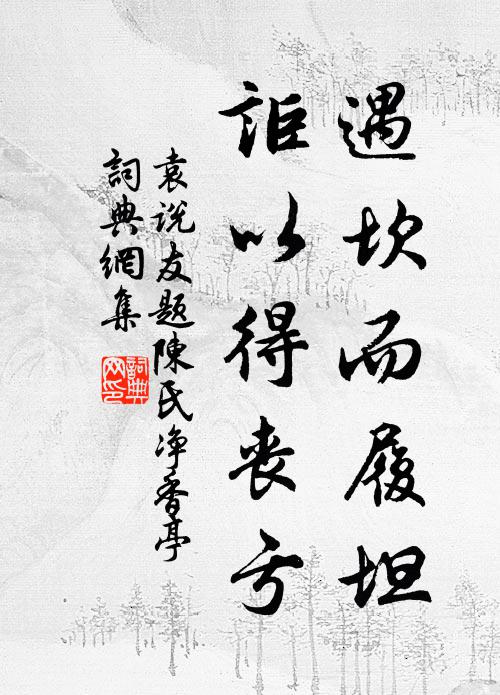 遇坎而履坦
詎以得喪亏
袁说友题陳氏净香亭
詞典網集
詞典
网印